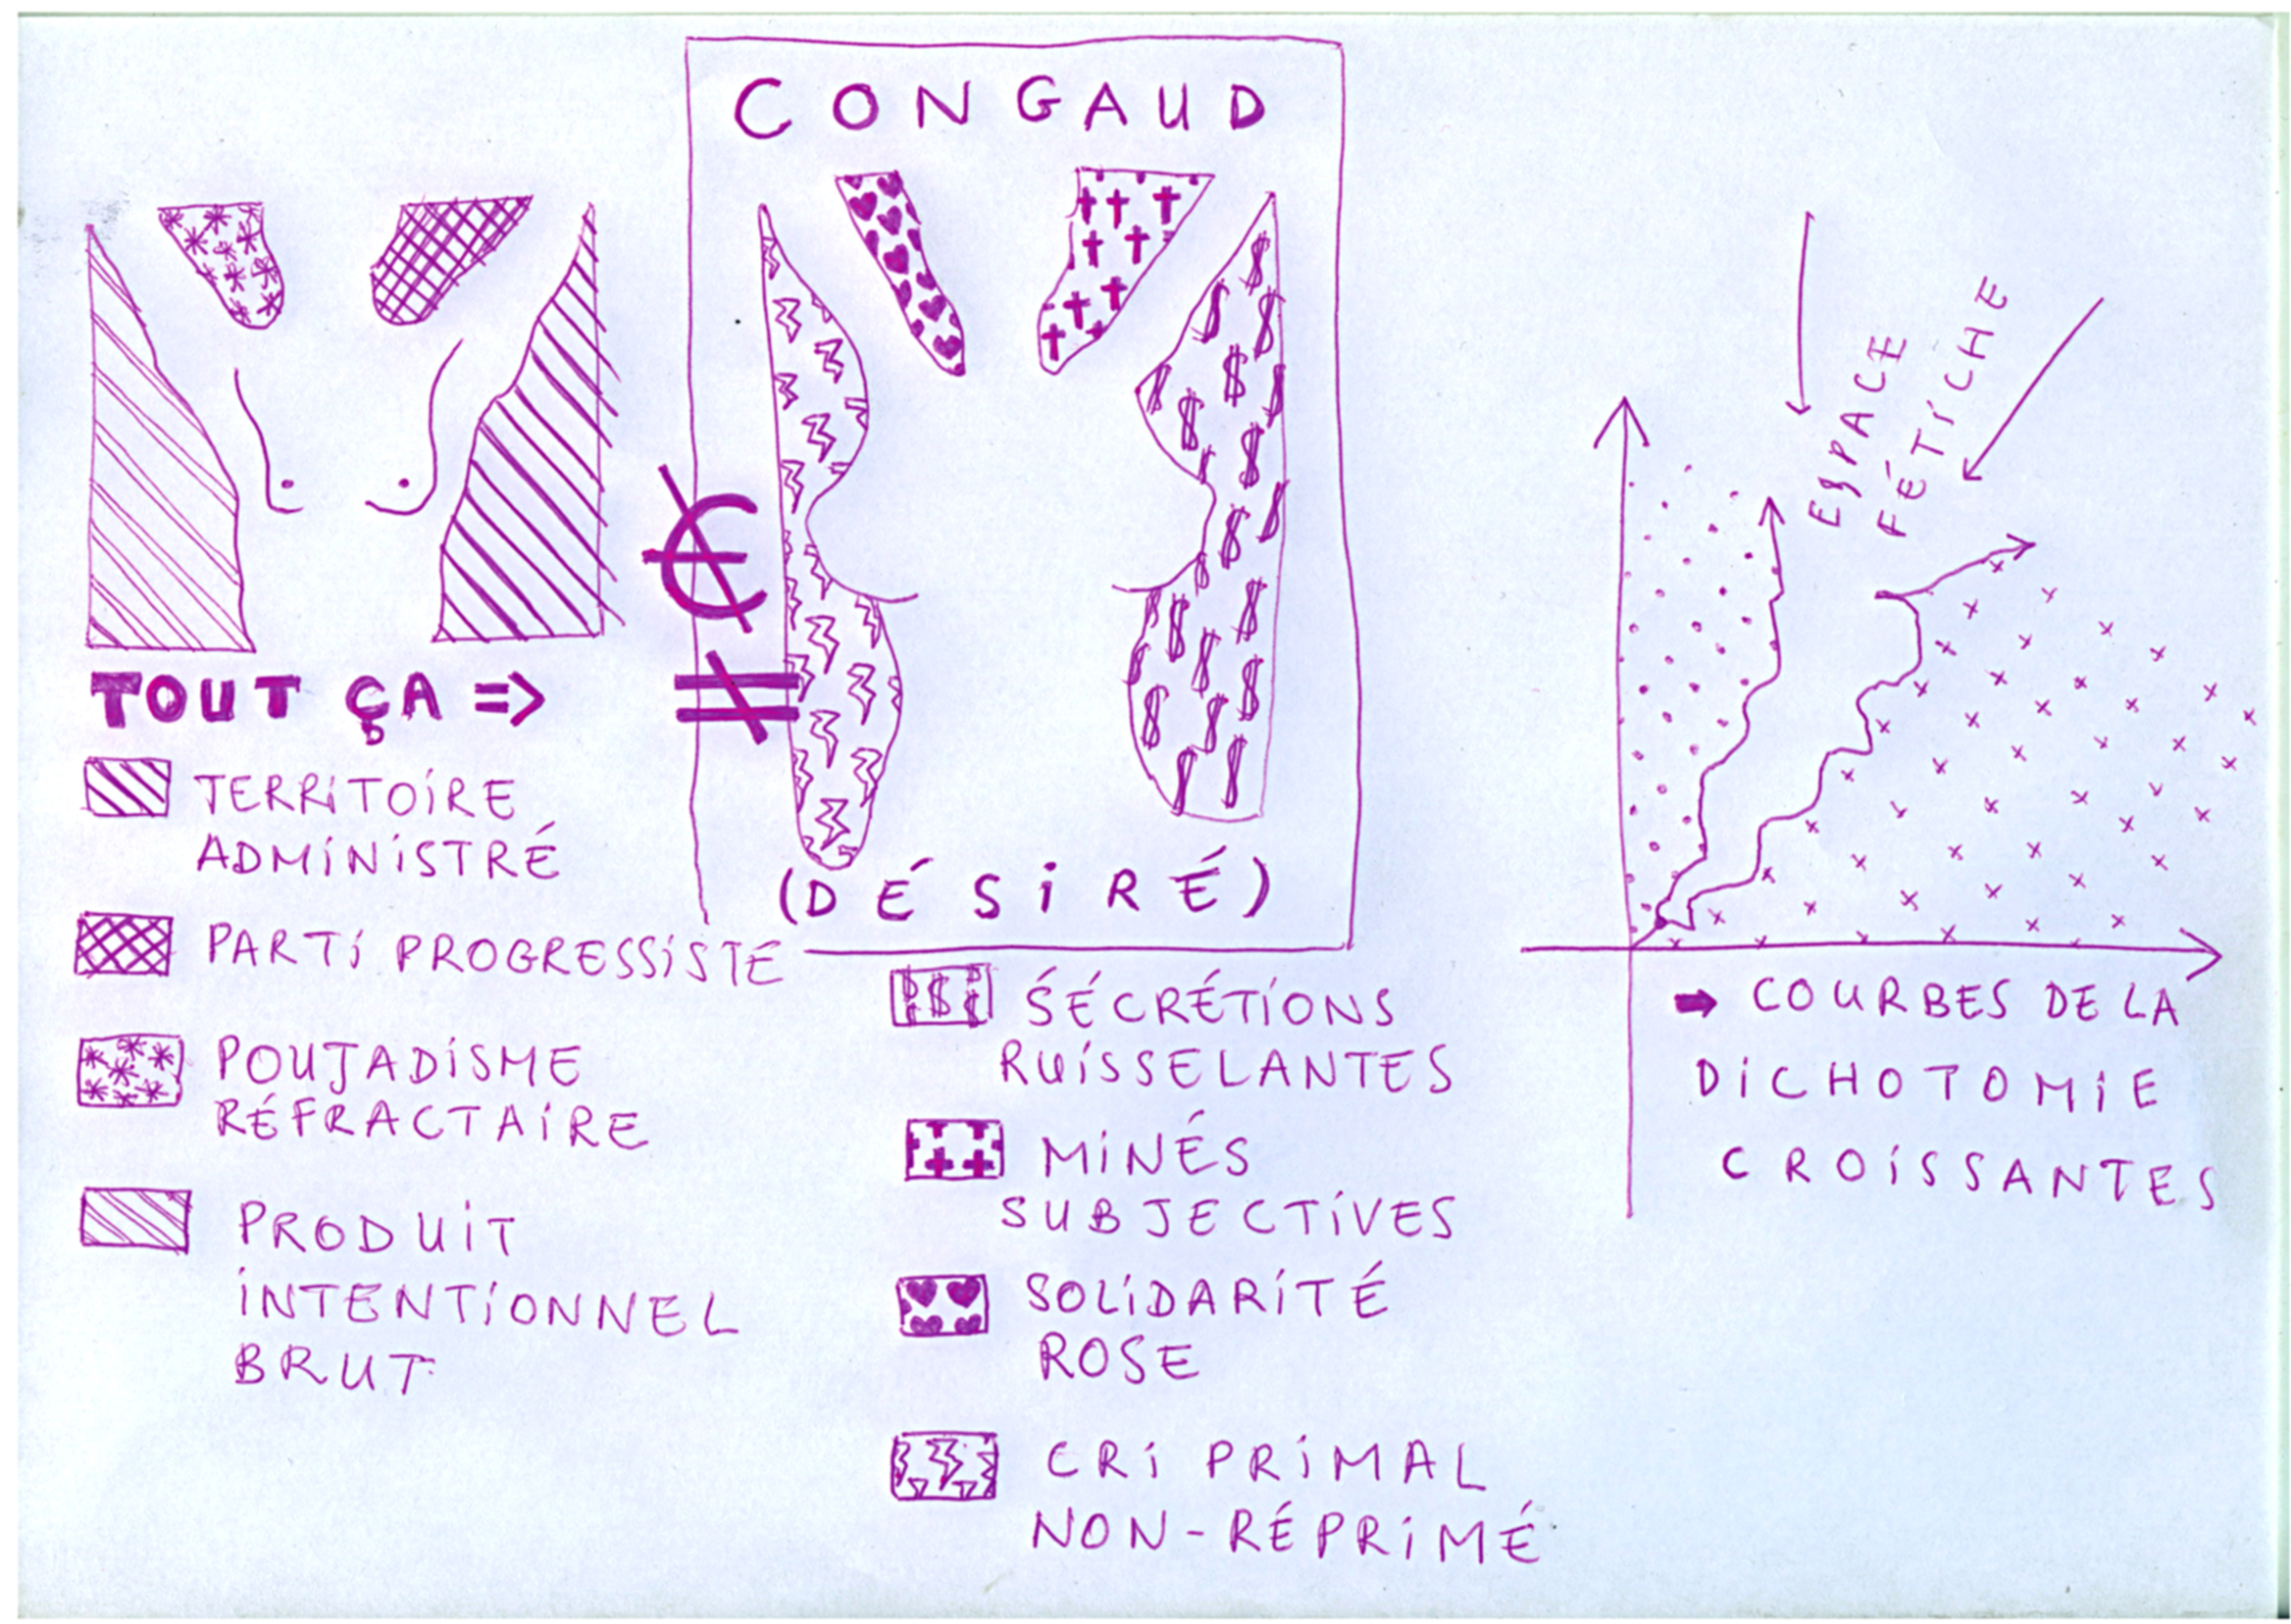 CONGAUD
(DÉSiRÉ)
TOUT ÇA =>
∉
≠
TERRiTOiRE
ADMiNiSTRÉ
PARTi PROGRESSiSTE
POUJADiSME
RÉFRACTAiRE
PRODUiT
iNTENTiONNEL
BRUT
SÉCRÉTiONS
RUiSSELANTES
MiNÉS
SUBJECTiVES
SOLiDARiTÉ
ROSE
CRi PRiMAL
NON-RÉPRiMÉ
ESPACE
FÉTiCHE
➡ COURBES DE LA
DiCHOTOMiE
CROiSSANTES